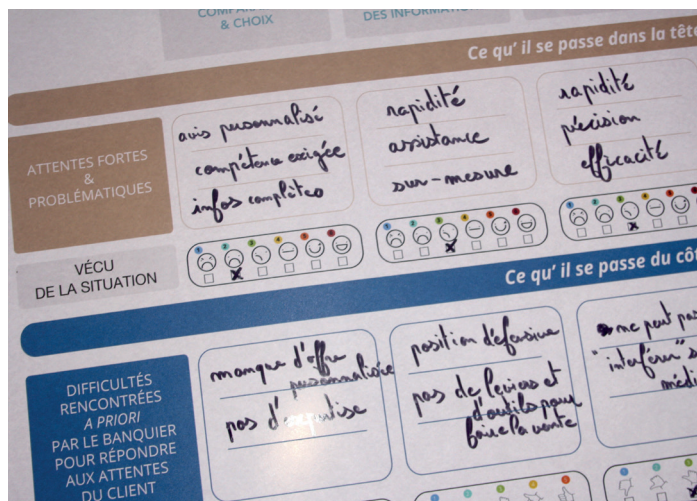 & CHOIX
DES INFORMATI
Ce qu' il se passe dans la tête
ATTENTES FORTES
&
PROBLÉMATIQUES
avis personnalisé
compétence exigée
infos complètes
rapidité
assistance
sur-mesure
rapidité
précision
efficacité
VÉCU
DE LA SITUATION
1 2 3 4 5 6
1 2 3 4 5 6
1 2 3 4 5
Ce qu' il se passe du côt
DIFFICULTÉS
RENCONTRÉES
A PRIORI
PAR LE BANQUIER
POUR RÉPONDRE
AUX ATTENTES
DU CLIENT
manque d'offre
personnalisée
pas d'expertise
position défensive
pas de leviers et
d'outils pour
faire la vente
ne peut pas
"interférer" s
médi